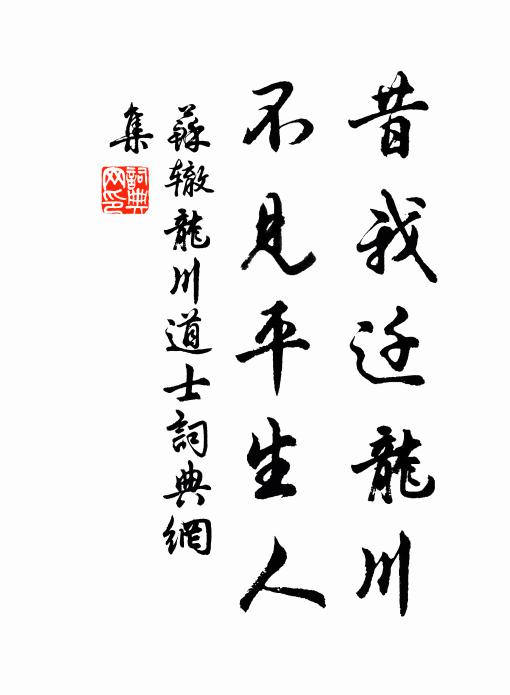 昔我迁龍川
不見平生人
蘇辙龍川道士詞典網
集
詞典
网印